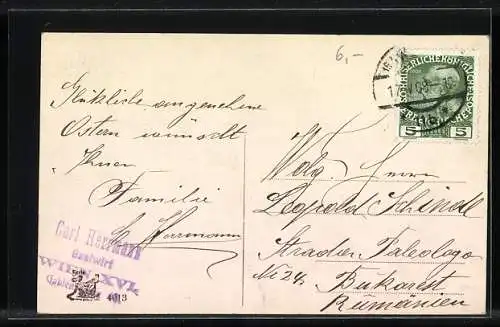 6,-
Glückliche angenehme
Ostern wünscht
Ihnen
Familie
C. Herrmann
Carl Herrmann
Gastwirt
WIEN, XVI.
4013
KAISERLICHE KÖNIGLICHE
ÖSTERREICHISCHE POST
5 5
Wolg. Herrn
Leopold Schindl
Stradar Paleologo
Nr. 24
Bukarest
Rumänien